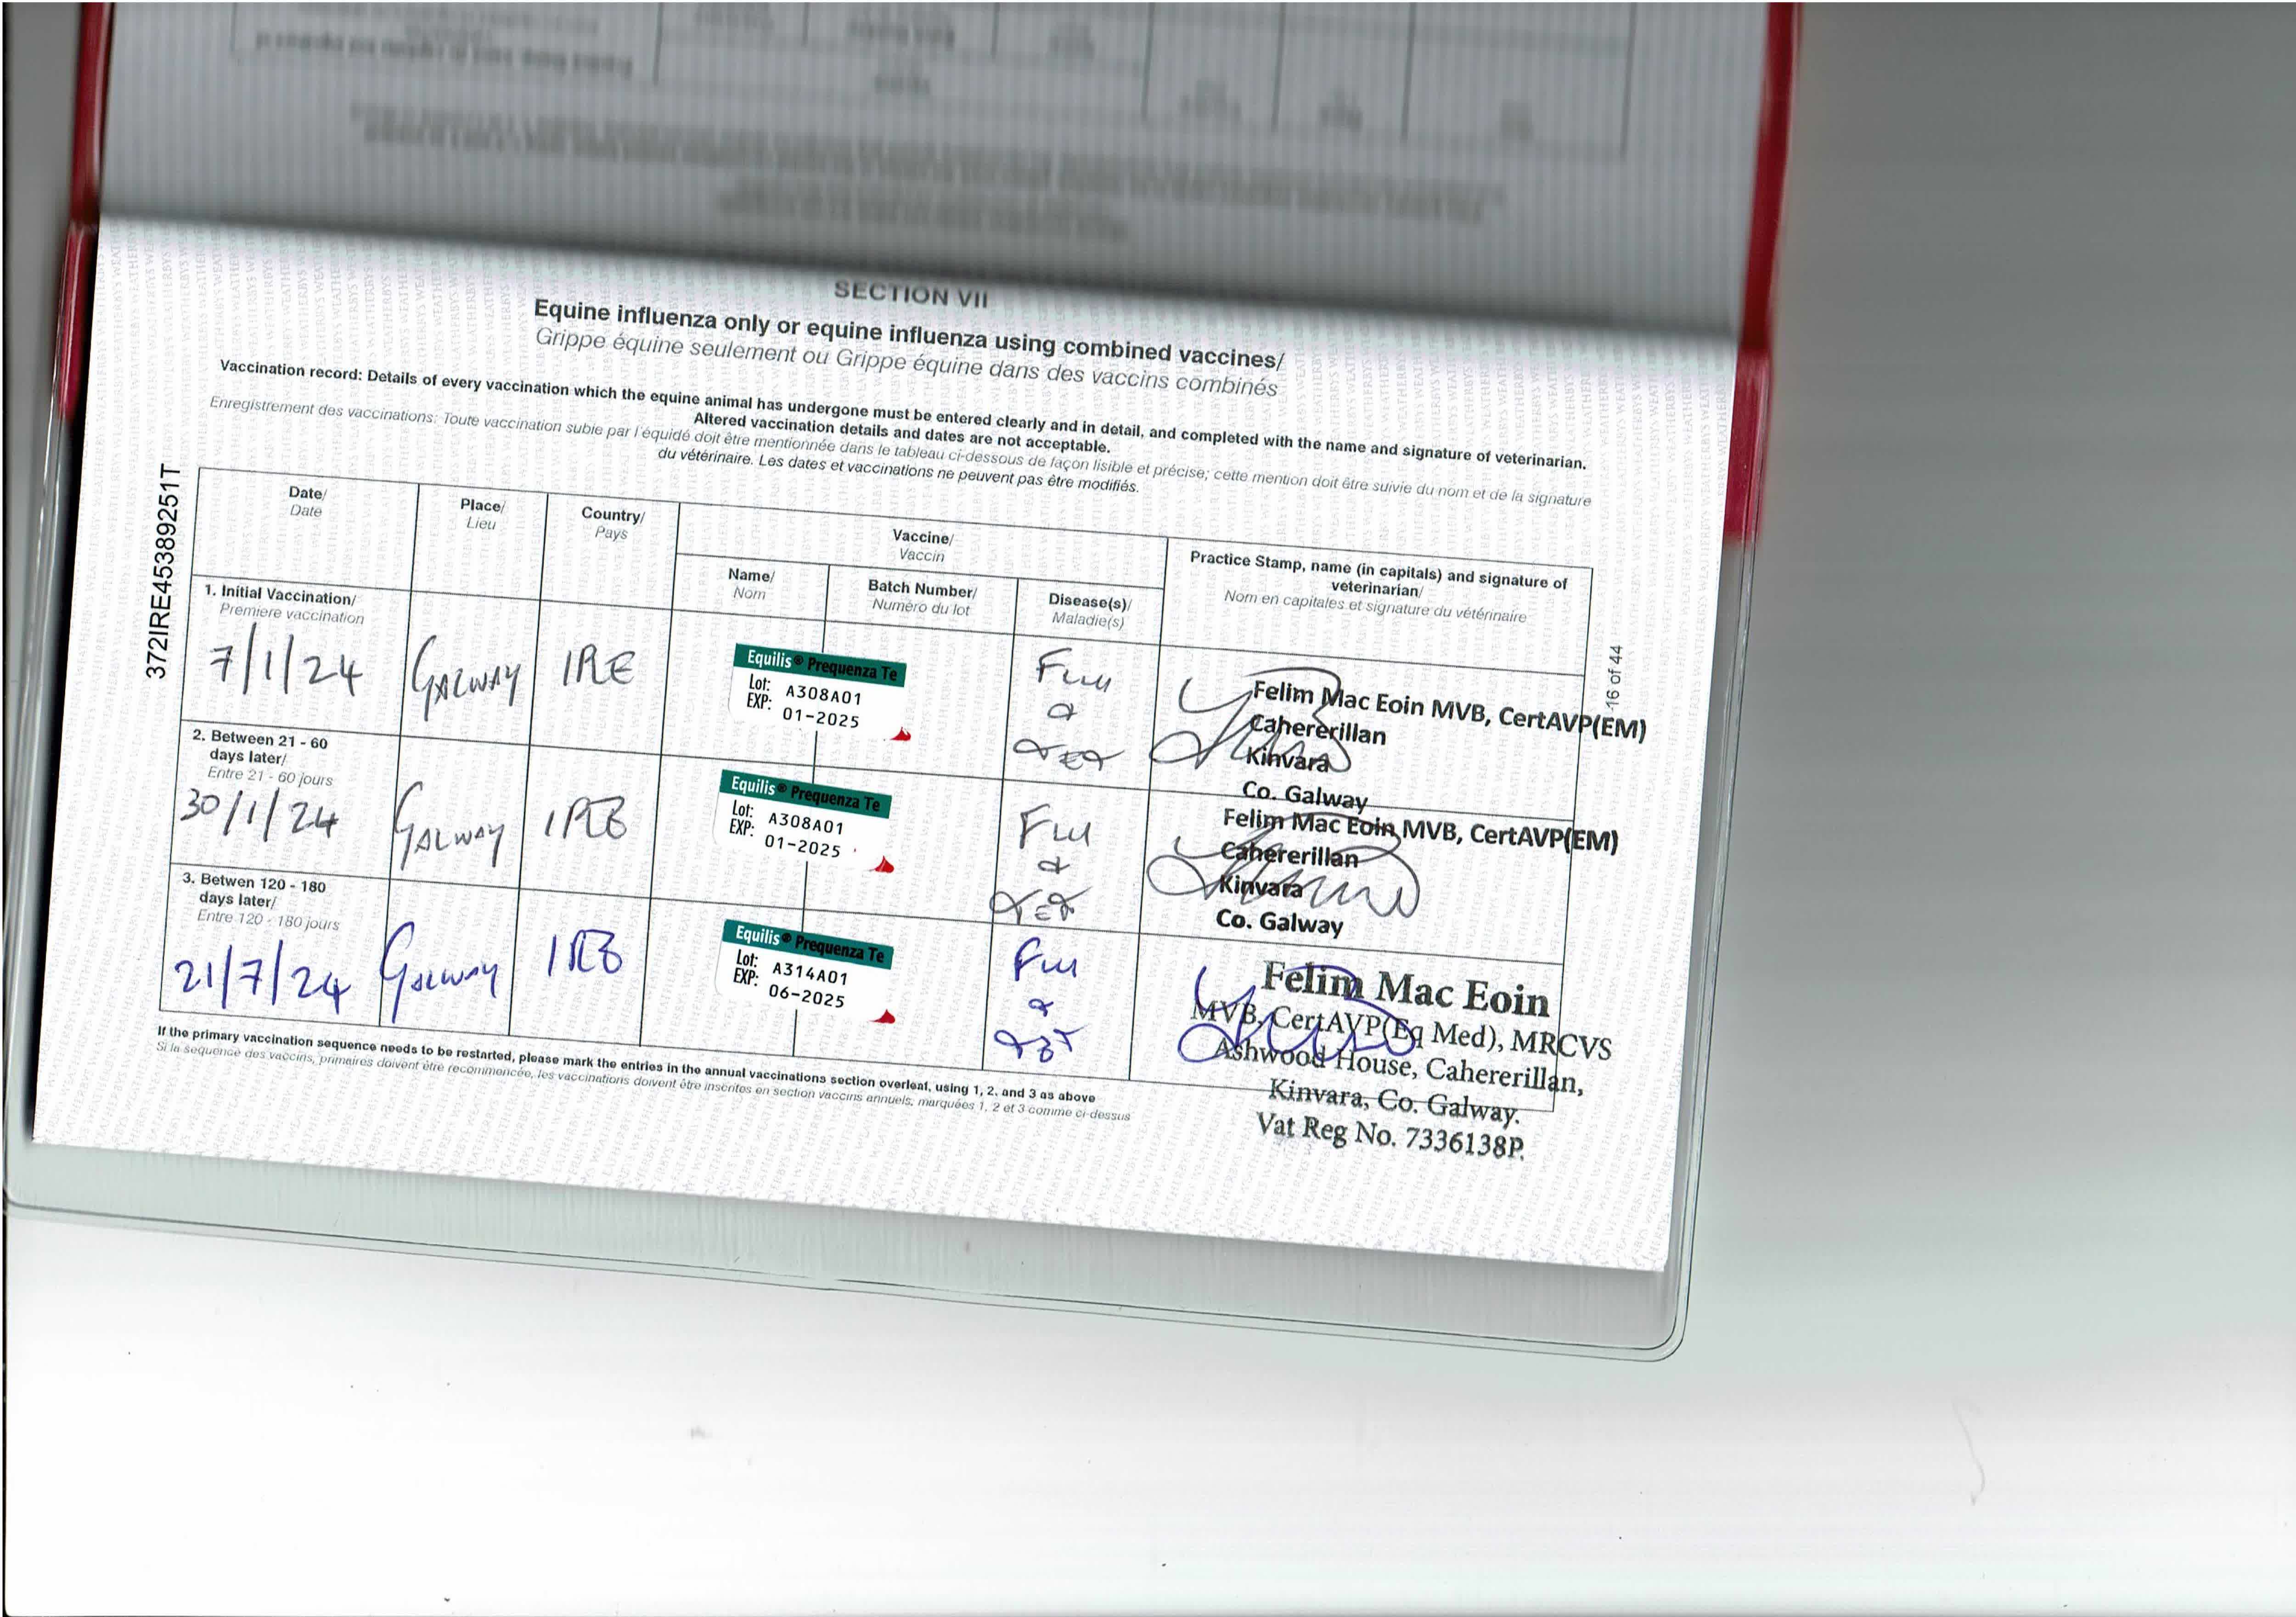 SECTION VII
Equine influenza only or equine influenza using combined vaccines/
Grippe équine seulement ou Grippe équine dans des vaccins combinés
Vaccination record: Details of every vaccination which the equine animal has undergone must be entered clearly and in detail, and completed with the name and signature of veterinarian.
Altered vaccination details and dates are not acceptable.
Enregistrement des vaccinations: Toute vaccination subie par l'équidé doit être mentionnée dans le tableau ci-dessous de façon lisible et précise; cette mention doit être suivie du nom et de la signature
du vétérinaire. Les dates et vaccinations ne peuvent pas être modifiés.
372IRE45389251T
Date/
Date
Place/
Lieu
Country/
Pays
Vaccine/
Vaccin
Name/
Nom
Batch Number/
Numéro du lot
Disease(s)/
Maladie(s)
Practice Stamp, name (in capitals) and signature of
veterinarian/
Nom en capitales et signature du vétérinaire
1. Initial Vaccination/
Premiere vaccination
7/1/24
GALWAY
IRE
Equilis® Prequenza Te
Lot: A308A01
EXP: 01-2025
Flu
&
TET
Felim Mac Eoin MVB, CertAVP(EM)
Cahererillan
Kinvara
Co. Galway
2. Between 21 - 60
days later/
Entre 21 - 60 jours
30/1/24
GALWAY
IRE
Equilis® Prequenza Te
Lot: A308A01
EXP: 01-2025
Flu
&
TET
Felim Mac Eoin MVB, CertAVP(EM)
Cahererillan
Kinvara
Co. Galway
3. Betwen 120 - 180
days later/
Entre 120 - 180 jours
21/7/24
GALWAY
IRE
Equilis® Prequenza Te
Lot: A314A01
EXP: 06-2025
Flu
&
TET
Felim Mac Eoin
MVB, CertAVP(Eq Med), MRCVS
Ashwood House, Cahererillan,
Kinvara, Co. Galway.
Vat Reg No. 7336138P.
16 of 44
If the primary vaccination sequence needs to be restarted, please mark the entries in the annual vaccinations section overleaf, using 1, 2, and 3 as above
Si la séquence des vaccins, primaires doivent être recommencée, les vaccinations doivent être inscrites en section vaccins annuels, marquées 1, 2 et 3 comme ci-dessus